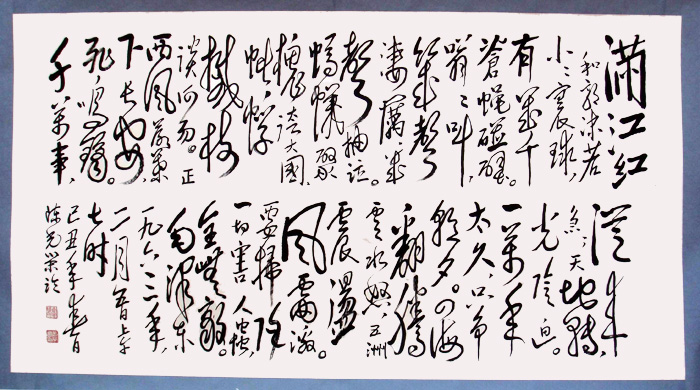 满江红
和郭沫若
小小寰球，
有幾个
蒼蝇碰壁。
嗡嗡叫，
幾声
凄厲，幾
声抽泣。
蚂蚁缘
槐誇大國，
蚍蜉
撼树
谈何易。正
西风落葉
下长安，
飞鸣镝。
千萬事，
從来
急；天地轉，
光陰迫。
一萬年
太久，只争
朝夕。四海
翻腾
雲水怒，五洲
震盪
风雷激。
要掃除
一切害人虫，
全無敵。
毛泽东
一九六三年
二月五日上午
七时
己丑年春